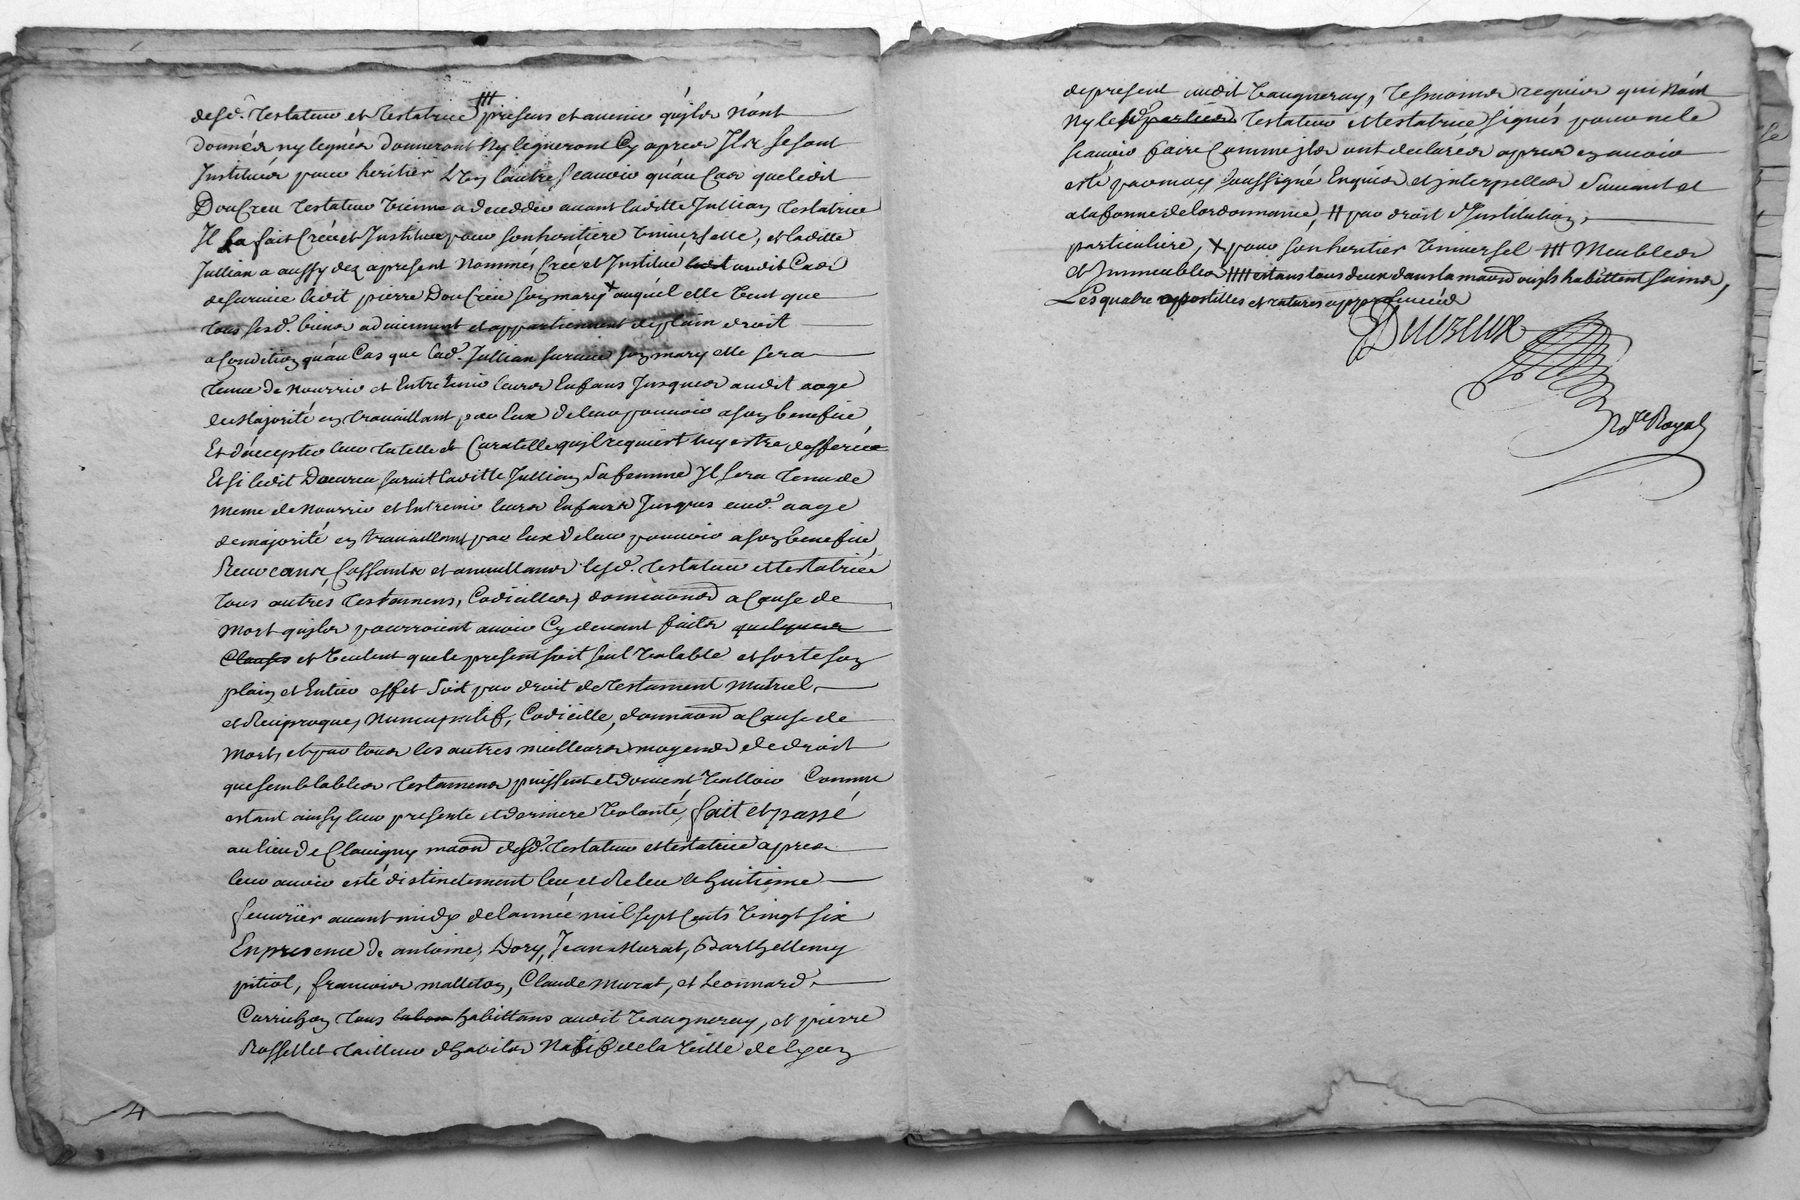 desd. testateur et testatrice ⧻ presens et avenir quils nónt
donnés ny legués donneront ny legueront Cy apres Ils se sont
Instituér pour heritier L'un Lautre scavoir quau Cas que ledit
DouCreu testateur vienne a deceddér avant laditte Jullian testatrice
Il la fait Créé et Institue pour son heritiere universelle, et laditte
Jullian a aussy dez apresent Nommé, Créé et Institue audit Cas
de survie ledit pierre DouCreu son mary + auquel elle veut que
tous sesd. biens adviennent et appartiennent de plain droit
a Condition quau Cas que lad. Jullian survive son mary elle sera
tenue de Nourrir et Entretenir leurs Enfans Jusques audit aage
de Majorité en travaillant par Eux de leur pouvoir a son benefice
Et d'accepter leur tutelle et Curatelle quil requiert luy estre defferée
Et si ledit Doucreu survit laditte Jullian sa femme Il sera tenu de
meme de Nourrir et Entrenir leurs Enfans Jusques aud. aage
de majorité en travaillant par Eux de leur pouvoir a son benefice
Revocans, Cassants et annullans lesd. testateur et testatrice
tous autres testamens, Codicilles, donnaons a Cause de
Mort quils pourroient avoir Cy devant faits quelques
Clauses et veulent que le present soit seul vallable et sorte son
plain et Entier effet soit par droit de testament mutuel
et Reciproque, Nuncupatif, Codicille, donnaon a Cause de
Mort, et par tous les autres meilleurs moyens de droit
que semblables testamens puissent et doivent valloir Comme
estant ainsy leur presente et derniere volonté, fait et passé
au lieu de Clavigny maon desd. testateur et testatrice apres
leur avoir esté distinctement leu et Releu le huitieme
fevvrier avant midy de lannée mil sept Cents vingt six
En presence de antoine, Dory, Jean Murat, Barthellemy
pitiot, francois malleton, Claude Murat, et Leonnard
Carrichon tous habittans audit vaugneray, et pierre
Rossellet tailleur d'habits Natif de la ville de lyon
de present audit vaugneray, tesmoins requis qui nónt
ny lesd. parties testateur et testatrice signés pour ne le
scavoir faire Comme ils ont declarés apres en avoir
esté par moy soussigné Enquis et interpellés suivant et
a la forme de lordonnance, ++ par droit d'Institution
particuliere, + pour son heritier universel ⧻ Meubles
et Immeubles ++++ estans tous deux dans la maon ou ils habittent sains,
Les quatre apostilles et ratures approuvées
Duvzeux
No.re Royal
4